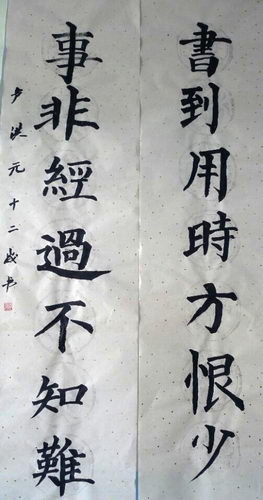 書到用時方恨少
事非經過不知難
洪元十二歲书